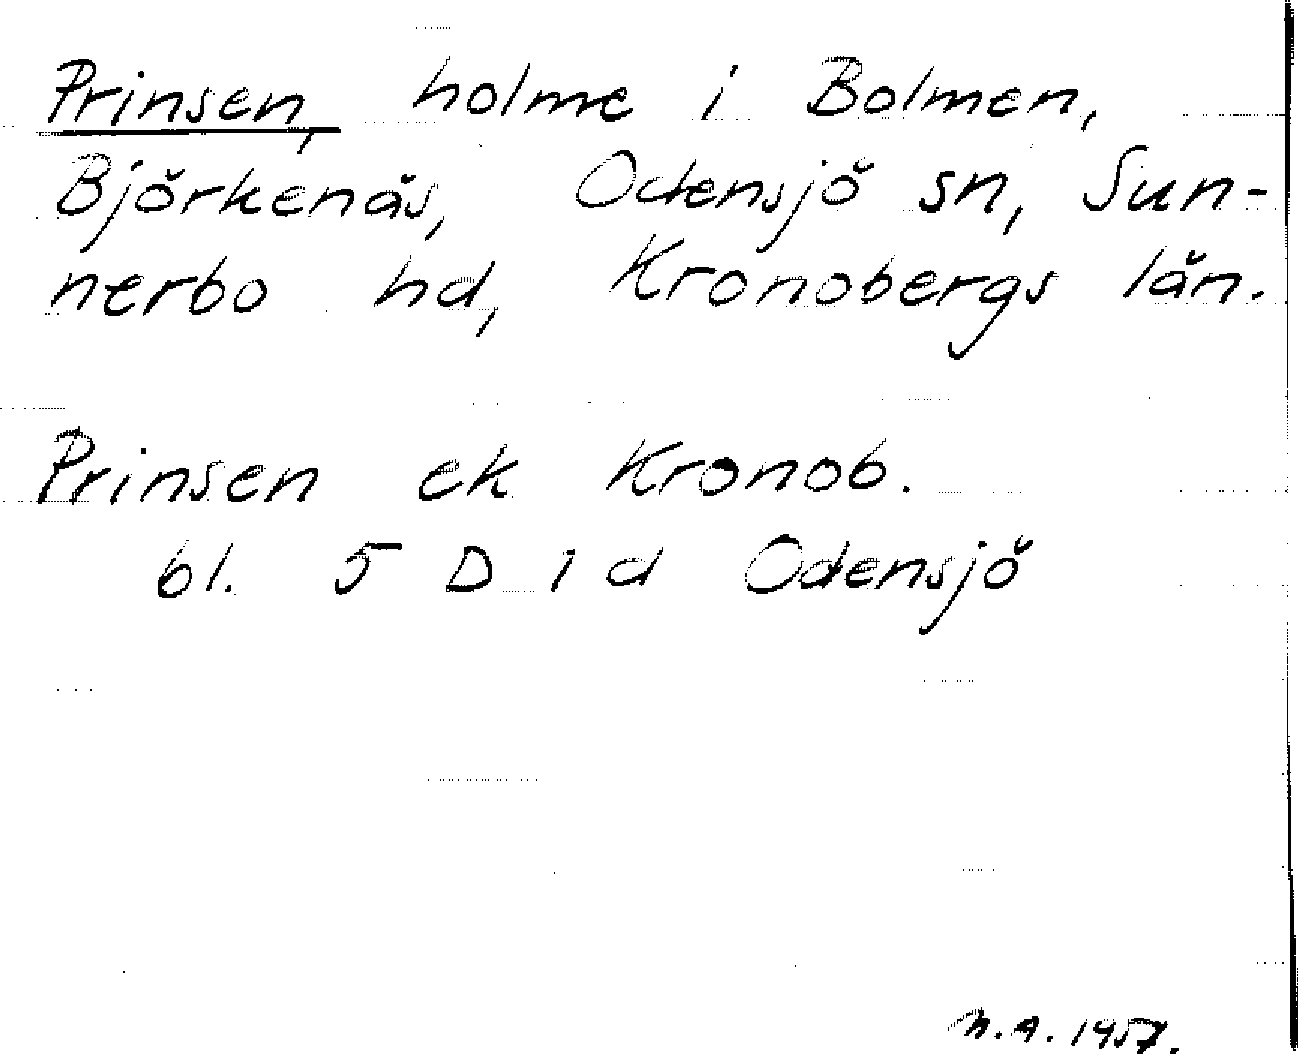 Prinsen, holme i Bolmen,
Björkenäs, Odensjö sn, Sun-
nerbo hd, Kronobergs län.
Prinsen ek Kronob.
bl. 5 D 1 d Odensjö
N.A. 1957.